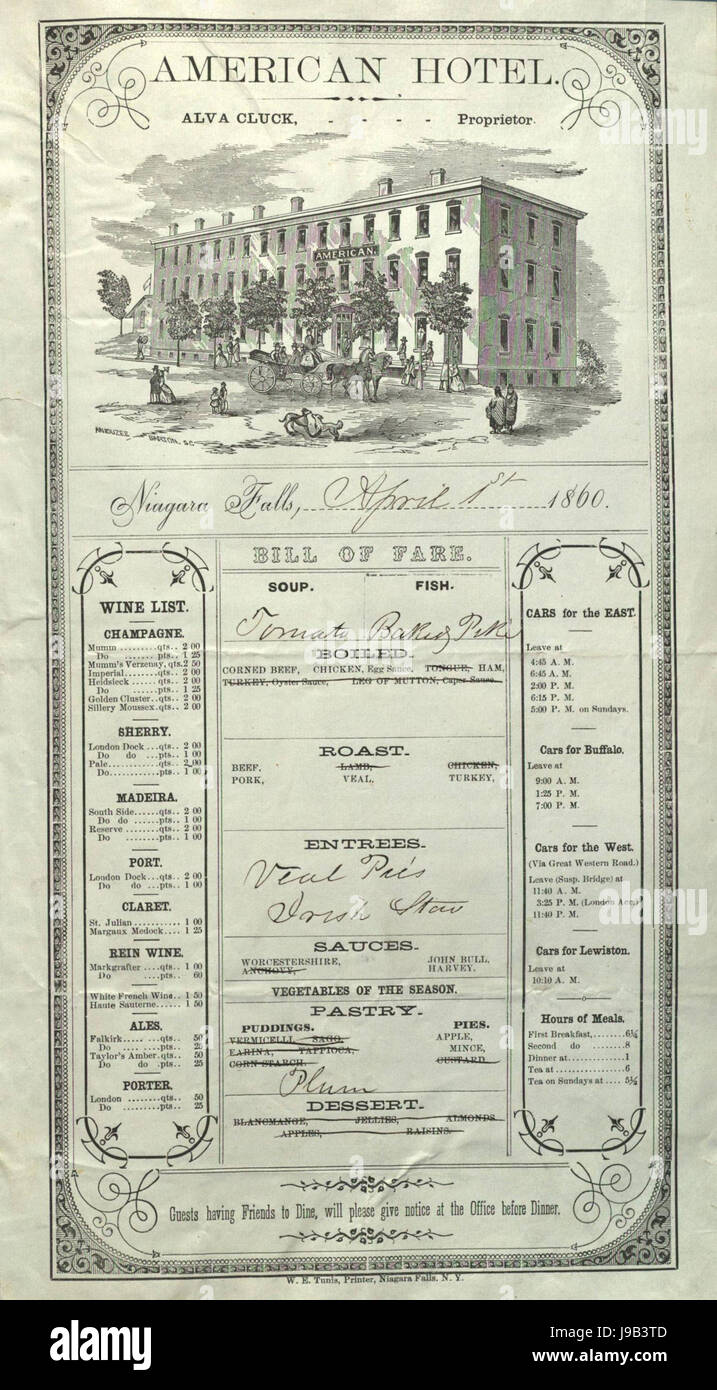 AMERICAN HOTEL.
ALVA CLUCK, - - - - Proprietor.
AMERICAN.
BARTON. S.C
Niagara Falls, April 1st 1860.
WINE LIST.
CHAMPAGNE.
Mumm .........qts.. 2 00
Do .........pts.. 1 25
Mumm's Verzenay, qts. 2 50
Imperial........qts.. 2 00
Heidsieck ......qts.. 2 00
Do ......pts.. 1 25
Golden Cluster..qts.. 2 00
Sillery Moussex.qts.. 2 00
SHERRY.
London Dock ...qts.. 2 00
Do do ...pts.. 1 00
Pale............qts.. 2 00
Do............pts.. 1 00
MADEIRA.
South Side......qts.. 2 00
Do do ......pts.. 1 00
Reserve ........qts.. 2 00
Do ........pts.. 1 00
PORT.
London Dock...qts.. 2 00
Do do ...pts.. 1 00
CLARET.
St. Julian ........... 1 00
Margaux Medock.... 1 25
REIN WINE.
Markgrafter ....qts.. 1 00
Do ....pts.. 60
White French Wine.. 1 50
Haute Sauterne...... 1 50
ALES.
Falkirk..... ....qts.. 50
Do ....pts.. 25
Taylor's Amber.qts.. 50
Do do .pts.. 25
PORTER.
London ........qts.. 50
Do .........pts.. 25
BILL OF FARE.
SOUP. FISH.
Tomato Baked Pike
BOILED.
CORNED BEEF, CHICKEN, Egg Sauce, TONGUE, HAM,
TURKEY, Oyster Sauce, LEG OF MUTTON, Caper Sauce.
ROAST.
BEEF, LAMB, CHICKEN,
PORK, VEAL, TURKEY,
ENTREES.
Veal Pies
Irish Stew
SAUCES.
WORCESTERSHIRE, JOHN BULL,
ANCHOVY, HARVEY.
VEGETABLES OF THE SEASON.
PASTRY.
PUDDINGS. PIES.
VERMICELLI, SAGO, APPLE,
FARINA, TAPPIOCA, MINCE,
CORN STARCH. CUSTARD.
Plum
DESSERT.
BLANCMANGE, JELLIES, ALMONDS
APPLES, RAISINS.
CARS for the EAST.
Leave at
4:45 A. M.
6:45 A. M.
2:00 P. M.
6:15 P. M.
5:00 P. M. on Sundays.
Cars for Buffalo.
Leave at
9:00 A. M.
1:25 P. M.
7:00 P. M.
Cars for the West.
(Via Great Western Road.)
Leave (Susp. Bridge) at
11:40 A. M.
3:25 P. M. (London Acc.)
11:40 P. M.
Cars for Lewiston.
Leave at
10:10 A. M.
Hours of Meals.
First Breakfast,.......6½
Second do .......8
Dinner at..............1
Tea at.................6
Tea on Sundays at ....5½
Guests having Friends to Dine, will please give notice at the Office before Dinner.
W. E. Tunis, Printer, Niagara Falls. N. Y.
alamy
alamy
Image ID: J9B3TD
www.alamy.com